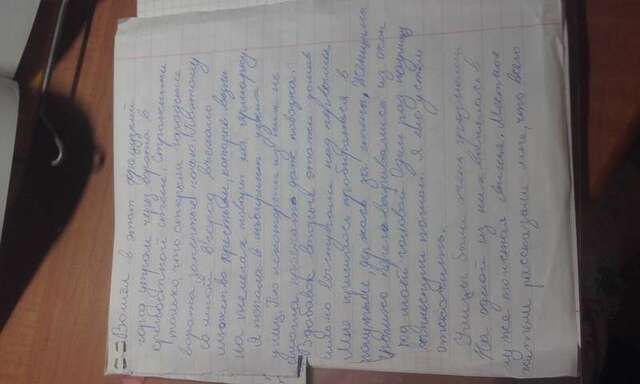 Вошёл в этот французкий
город утром через ворота в
крепостной стене. Стражники
только что открыли городские
ворота запертые ночью. Поэтому
со мной в город въехало
множество крестьян, которые везли
на телегах товары на ярмарку.
Я попала в лабиринт узких
улиц. По некоторым из них не
смогла проехать даже повозка.
Вдобавок вторые этажи домов
сильно выступали над первыми.
Мне пришлось пробираться в
полутьме, держась за стены, Женщины
громко переговаривались из окон
над моей головой Один раз
помои. Я еле успел
отскочить.
Улицы были очень грязными
На одной из них валялась в
луже толстая свинья. Местные
жители рассказали мне, что всего